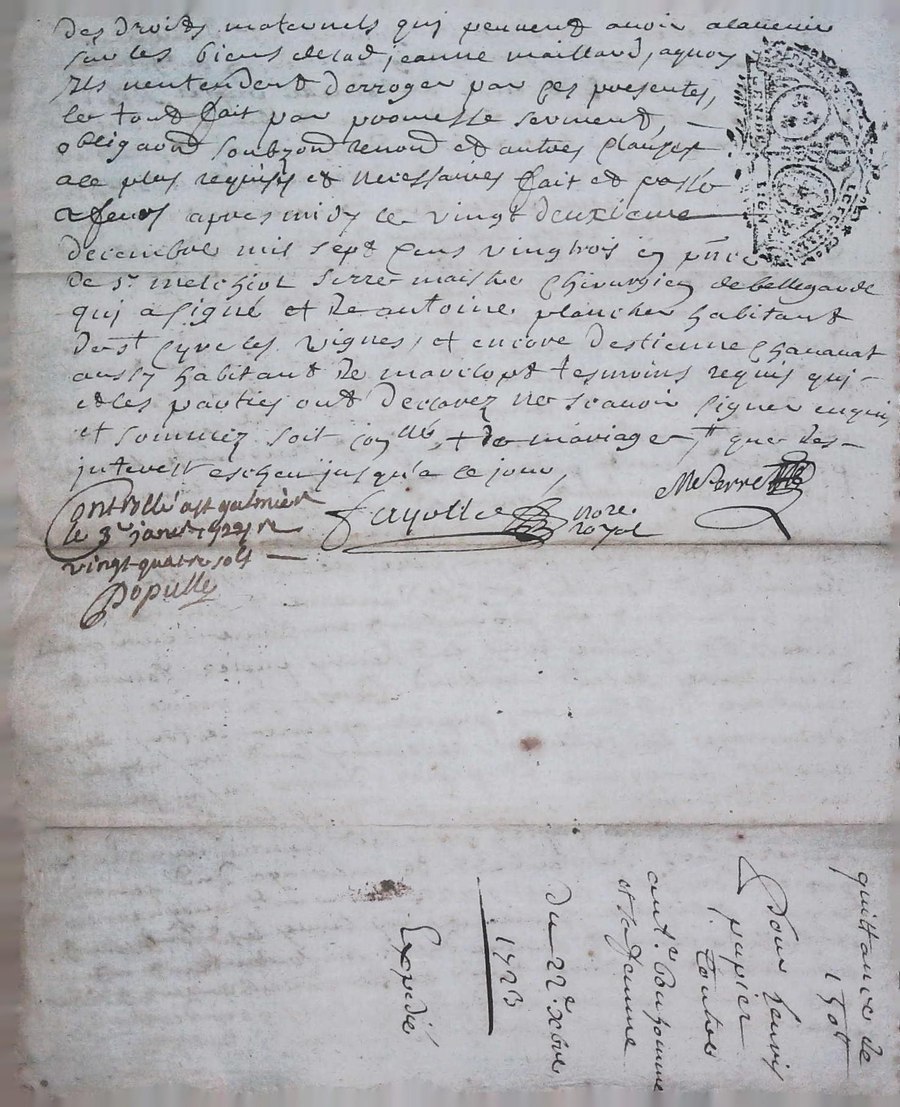 des droits maternels qui peuvent avoir alavenir
sur les biens delad, jeanne maillard, aquoy
Ils nentendent derroger par ces presentes,
le tout fait par promesse serment,
obligaon soubzon renon et autres clauses
ale plus requises et necessaires fait et passé
a feurs apres midy le vingt deuxieme
decembre mil sept cens vingtrois en pnce
de sr melchiol serre maistre chirurgien de bellegarde
qui a signé et de antoine plancher habitant
de st cyre les vignes, et encore destienne chavanat
aussy habitant de marclopt tesmoins requis qui
et les parties ont declarez ne scavoir signer enquis
et sommez soit + de mariage, # que des
interest escheu jusqu'a ce jour,
MeSerre
Fayolle nore.
royal
Controllé a st galmier
le 3e janer 1724 r
vingt quatre solz
Populle
GENERAL LION
quittance de
150lt
Pour henri
pupier
Contre
ant.
et sa femme
du 22e xbre
1723
Expedié